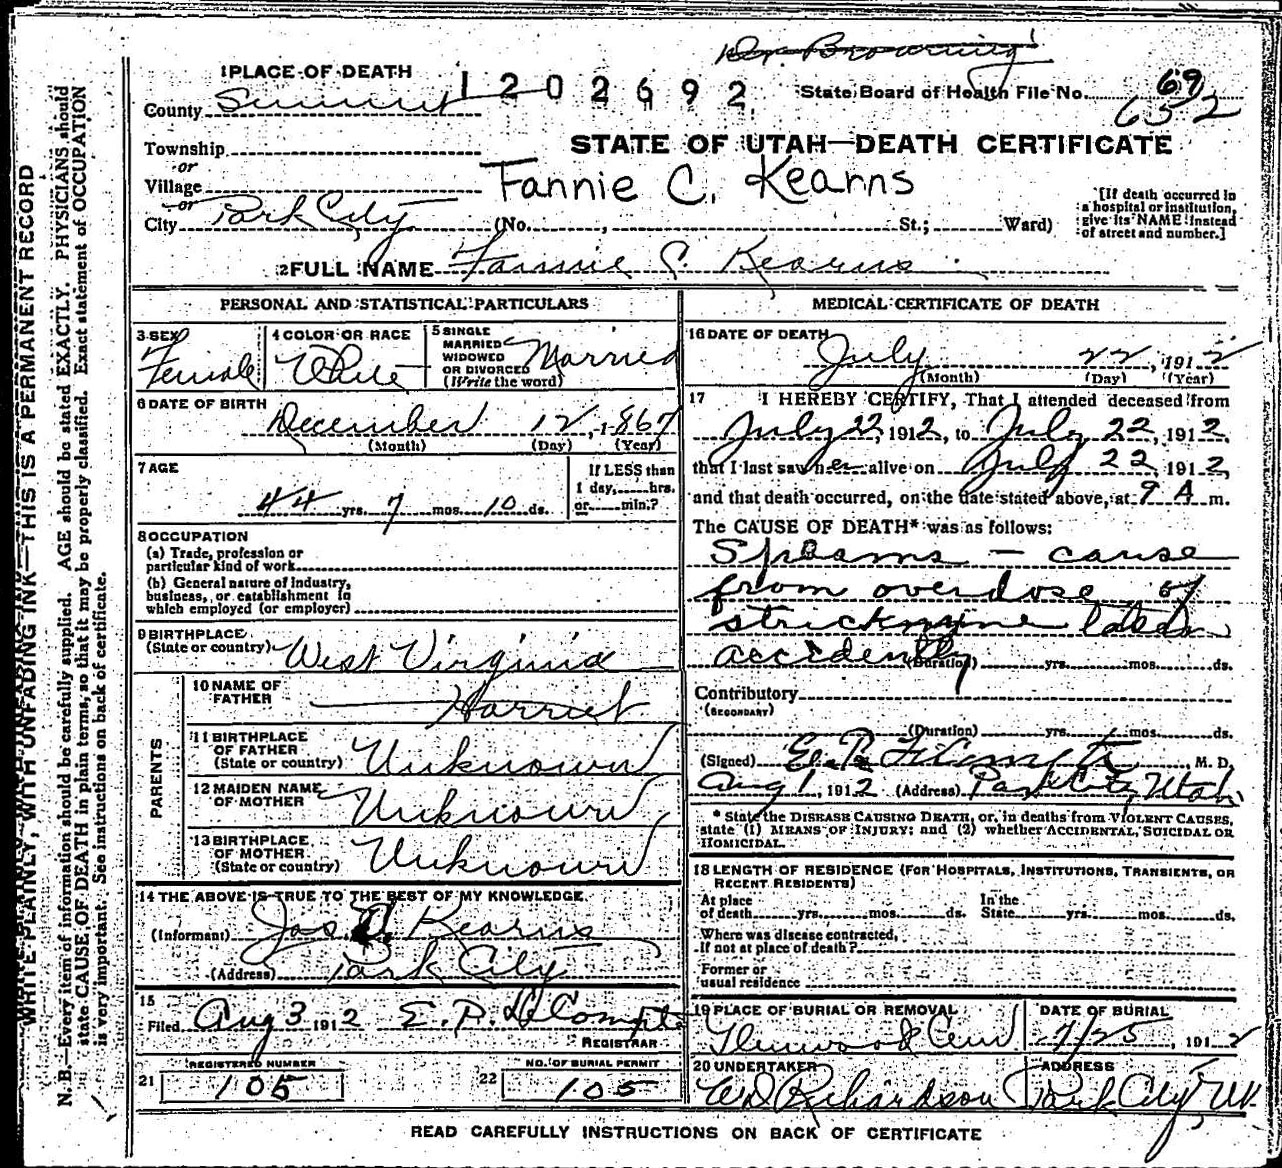 Dr. Browning
1 PLACE OF DEATH
1202692
State Board of Health File No. 69
652
County Summit
STATE OF UTAH—DEATH CERTIFICATE
Township
or
Village
or
City Park City (No. , St.; Ward)
Fannie C. Kearns
[If death occurred in
a hospital or institution,
give its NAME instead
of street and number.]
2 FULL NAME Fannie C. Kearns
PERSONAL AND STATISTICAL PARTICULARS
3 SEX Female
4 COLOR OR RACE White
5 SINGLE
MARRIED
WIDOWED
OR DIVORCED
(Write the word)
Married
6 DATE OF BIRTH
December 12, 1867
(Month) (Day) (Year)
7 AGE
44 yrs. 7 mos. 10 ds.
If LESS than
1 day, hrs.
or min.?
8 OCCUPATION
(a) Trade, profession or
particular kind of work
(b) General nature of industry,
business, or establishment in
which employed (or employer)
9 BIRTHPLACE
(State or country) West Virginia
PARENTS
10 NAME OF
FATHER Harriet
11 BIRTHPLACE
OF FATHER
(State or country) Unknown
12 MAIDEN NAME
OF MOTHER Unknown
13 BIRTHPLACE
OF MOTHER
(State or country) Unknown
14 THE ABOVE IS TRUE TO THE BEST OF MY KNOWLEDGE
(Informant) Jas. Kearns
(Address) Park City
15
Filed Aug 3 1912 E. P. LeCompte
REGISTRAR
REGISTERED NUMBER
21 105
NO. OF BURIAL PERMIT
22 105
MEDICAL CERTIFICATE OF DEATH
16 DATE OF DEATH
July 22, 1912
(Month) (Day) (Year)
17 I HEREBY CERTIFY, That I attended deceased from
July 22, 1912, to July 22, 1912,
that I last saw her alive on July 22, 1912,
and that death occurred, on the date stated above, at 9 A m.
The CAUSE OF DEATH* was as follows:
Spasms — cause
from overdose of
stricknyine taken
accidently
(Duration) yrs. mos. ds.
Contributory
(SECONDARY)
(Duration) yrs. mos. ds.
(Signed) E. P. LeCompte, M. D.
Aug 1, 1912 (Address) Park City, Utah
* State the DISEASE CAUSING DEATH, or, in deaths from VIOLENT CAUSES,
state (1) MEANS OF INJURY; and (2) whether ACCIDENTAL, SUICIDAL OR
HOMICIDAL.
18 LENGTH OF RESIDENCE (FOR HOSPITALS, INSTITUTIONS, TRANSIENTS, OR
RECENT RESIDENTS)
At place
of death yrs. mos. ds.
In the
State yrs. mos. ds.
Where was disease contracted,
If not at place of death?
Former or
usual residence
19 PLACE OF BURIAL OR REMOVAL
Glenwood Cem
DATE OF BURIAL
7/25, 1912
20 UNDERTAKER
W D Richardson
ADDRESS
Park City, Ut.
READ CAREFULLY INSTRUCTIONS ON BACK OF CERTIFICATE
WRITE PLAINLY, WITH UNFADING INK—THIS IS A PERMANENT RECORD
N. B.—Every item of information should be carefully supplied. AGE should be stated EXACTLY. PHYSICIANS should
state CAUSE OF DEATH in plain terms, so that it may be properly classified. Exact statement of OCCUPATION
is very important. See instructions on back of certificate.